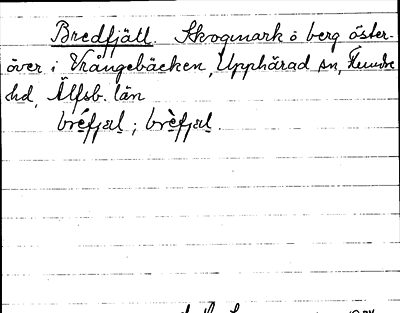 Bredfjäll. Skogmark o berg öster-
över i Vrångebäcken, Upphärad sn, Flundre
hd, Älfsb. län
bréfjal; brèfjal.